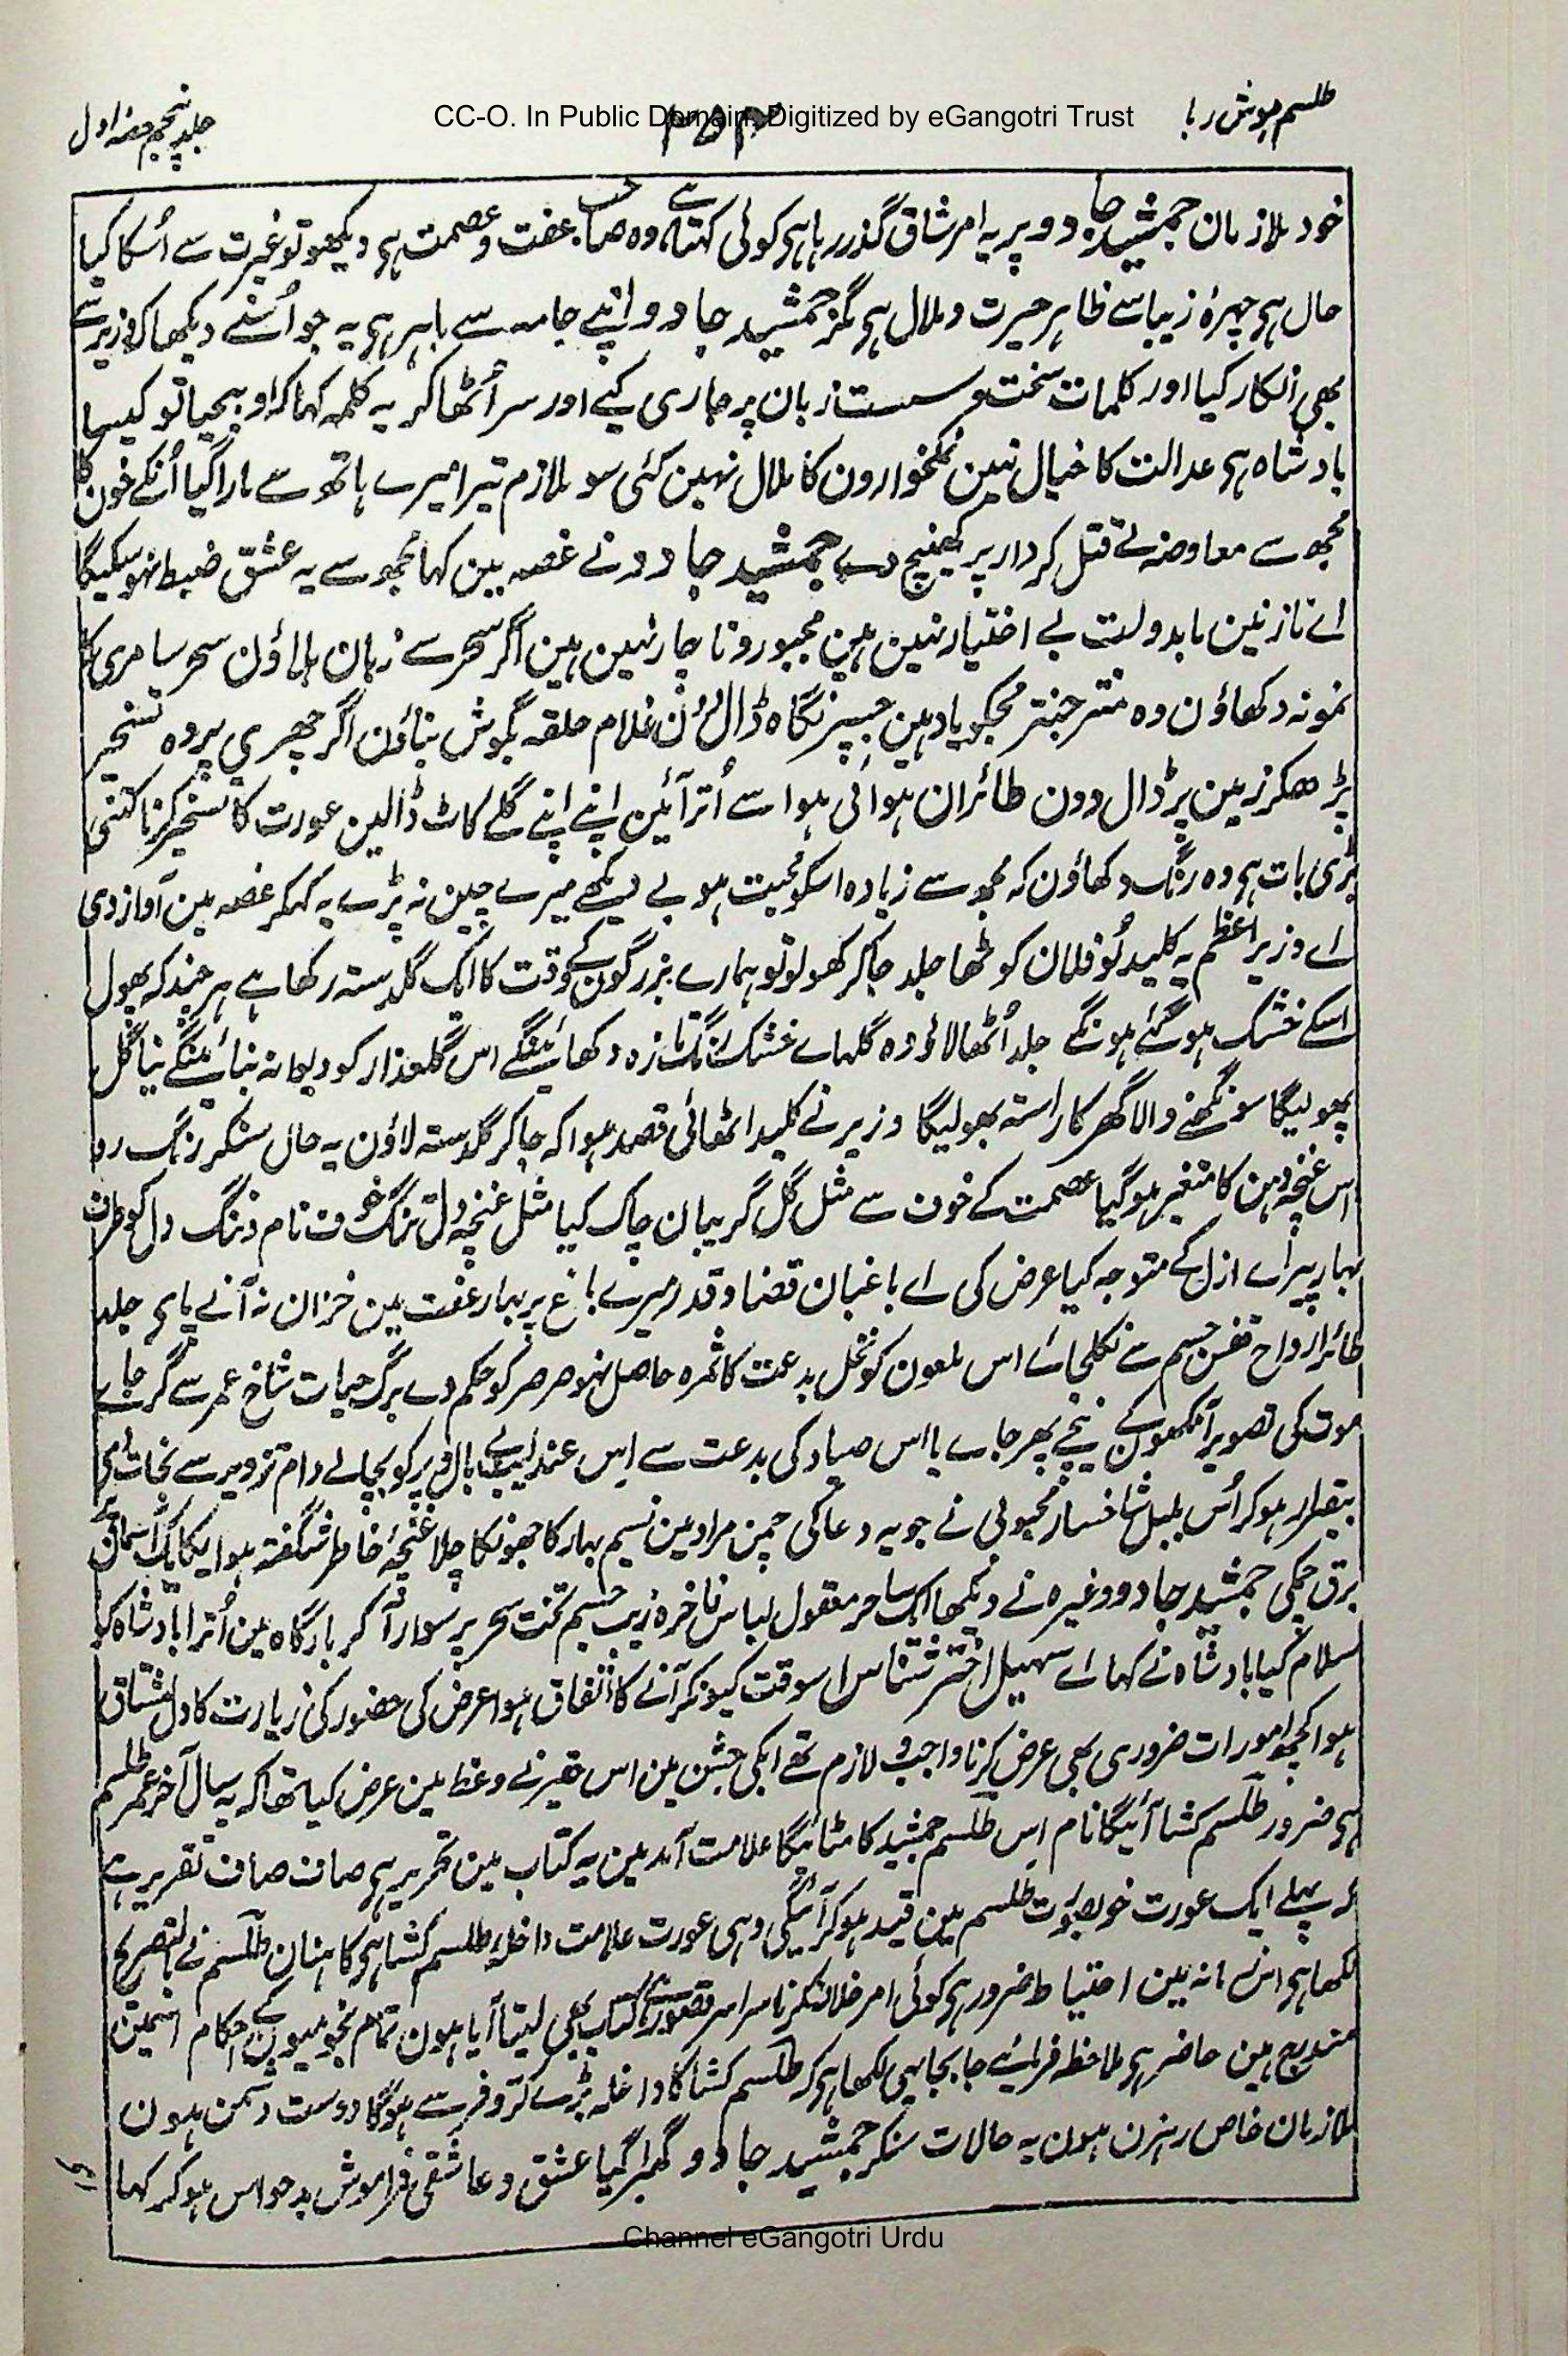 طلسم ہوش ربا
CC-O. In Public Domain. Digitized by eGangotri Trust
جلد پنجم حصہ اول
خود ملازمان جمشید جادو پر یہ امر شاق گذر رہا ہی کوئی کہتا ہے وہ صاحب عفت و عصمت ہی دیکھو تو غیرت سے اُسکا کیا
حال ہی چہرۂ زیبا سے ظاہر حیرت و ملال ہی مگر جمشید جادو اپنے جامہ سے باہر ہی یہ جو اُسنے دیکھا کہ وزیر سے
بھی انکار کیا اور کلمات سخت و سست زبان پر جاری کیے اور سر اُٹھا کر یہ کلمہ کہا کہ او بیحیا تو کیسا
بادشاہ ہی عدالت کا خیال نہین نمکخوارون کا ملال نہین کئی سو ملازم تیرا میرے ہاتھ سے مارا گیا اُنکے خون کا
مجھ سے معاوضہ لے قتل کر دار پر کھینچ دے جمشید جادو نے غصہ مین کہا مجھ سے یہ عشق ضبط نہو سکیگا
اے نازنین مابدولت بے اختیار نہین ہین مجبور و ناچار نہین ہین اگر سحر سے زبان ہلاؤن سحر سامری کا
نمونہ دکھاؤن وہ منتر جنتر مجکو یاد ہین جسپر نگاہ ڈالون غلام حلقہ بگوش بناؤن اگر چھری پر وہ تسخیر
پڑھکر زمین پر ڈال دون طائران ہوائی ہوا سے اُتر آئین اپنے اپنے گلے کاٹ ڈالین عورت کا تسخیر کرنا کتنی
بڑی بات ہی وہ رنگ دکھاؤن کہ مجھ سے زیادہ اسکو محبت ہو بے دیکھے میرے چین نہ پڑے یہ کہکر غصہ مین آواز دی
اے وزیر اعظم یہ کلید لو فلان کوٹھا جلد جا کر کھولو تو ہمارے بزرگون کے وقت کا ایک گلدستہ رکھا ہے ہر چند کہ پھول
اسکے خشک ہو گئے ہونگے جلد اُٹھا لاؤ وہ گلہاے خشک رنگ تازہ دکھائینگے اس گلعذار کو دیوانہ بنائینگے نیا گل
پھولیگا سونگھنے والا گھر کا راستہ بھولیگا وزیر نے کلید اٹھائی قصد ہوا کہ جا کر گلدستہ لاؤن یہ حال سنکر رنگ رو
اس غنچہ دہن کا متغیر ہو گیا عصمت کے خوف سے مثل گل گریبان چاک کیا مثل غنچہ دل تنگ خوف نام و ننگ دل کو طرف
بہار پیراے ازل کے متوجہ کیا عرض کی اے باغبان قضا و قدر میرے باغ پر بہار عفت مین خزان نہ آنے پاے جلد
طائر ارواح قفس جسم سے نکلجائے اس ملعون کو نخل بدعت کا ثمرہ حاصل نہو صرصر کو حکم دے برگ حیات شاخ عمر سے گر جاے
موت کی تصویر آنکھون کے نیچے پھر جاے یا اس صیاد کی بدعت سے اس عندلیب بے بال و پر کو بچا لے دام تزویر سے نجات دے
بیقرار ہو کر اُس بلبل شاخسار محبوبی نے جو یہ دعا کی چمن مراد مین نسیم بہار کا جھونکا چلا غنچۂ خاطر شگفتہ ہوا یکایک آسمان سے
برق چمکی جمشید جادو وغیرہ نے دیکھا ایک ساحر معقول لباس فاخرہ زیب جسم تخت سحر پر سوار آ کر بارگاہ مین اُترا بادشاہ کو
سلام کیا بادشاہ نے کہا اے سہیل اختر شناس اسوقت کیونکر آنے کا اتفاق ہوا عرض کی حضور کی زیارت کا دل مشتاق
ہوا کچھ امورات ضروری بھی عرض کرنا واجب و لازم تھے ابکی جشن مین اس حقیر نے وعظ مین عرض کیا تھا کہ یہ سال آخر عمر طلسم
ہی ضرور طلسم کشا آئیگا نام اس طلسم جمشید کا مٹائیگا علامت آمد مین یہ کتاب مین تحریر ہی صاف صاف تقریر ہے
کہ پہلے ایک عورت خوبصورت طلسم مین قید ہو کر آئیگی وہی عورت علامت داخلہ طلسم کشا ہی کاہنان طلسم نے بالتصریح
لکھا ہی اس زمانہ مین احتیاط ضرور ہی کوئی امر خلاف کرنا سراسر قصور ہی کتاب بھی لیتا آیا ہون تمام نجومیون کے احکام اسمین
مندرج ہین حاضر ہی ملاحظہ فرمائیے جا بجا یہی لکھا ہی کہ طلسم کشا کا داخلہ بڑے کرّوفر سے ہوگا دوست دشمن ہون
ملازمان خاص رہزن ہون یہ حالات سنکر جمشید جادو گھبرا گیا عشق و عاشقی فراموش بدحواس ہو کر کہا
Channel eGangotri Urdu